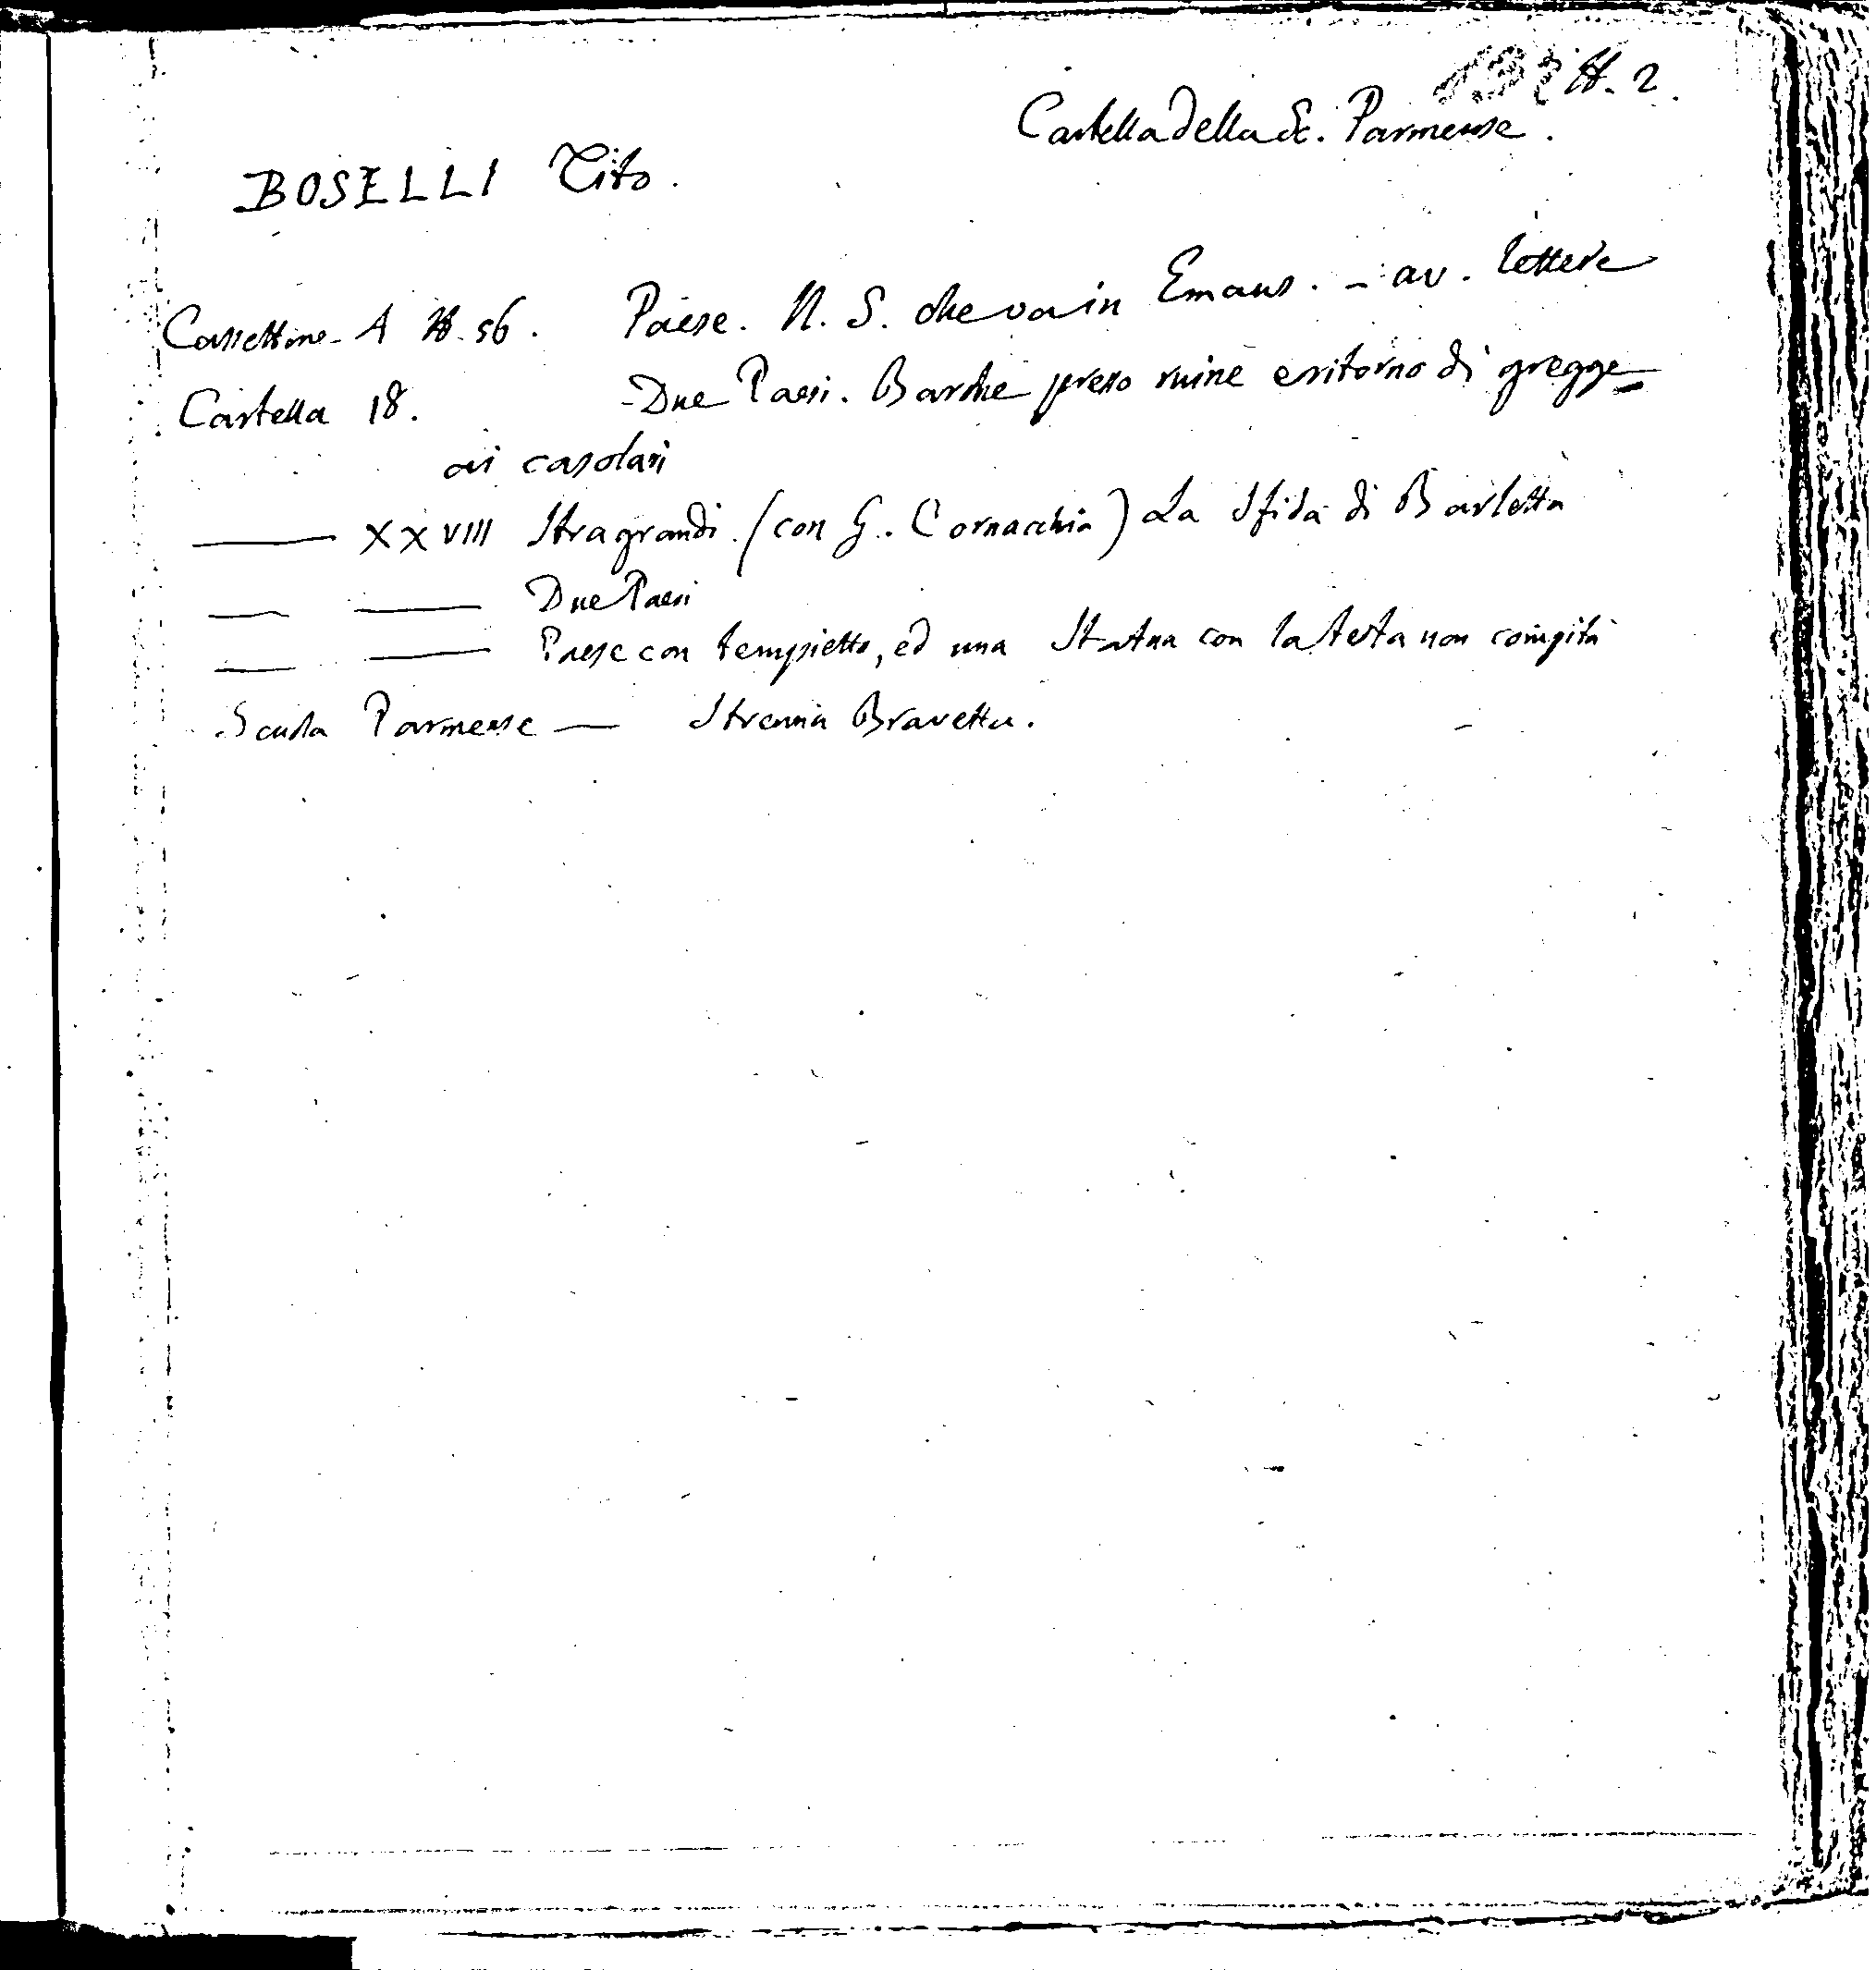 N. 2.
Cartella della Sc. Parmense.
BOSELLI Tito.
Cassettone A N. 56. Paese. N. S. che va in Emaus. - av. lettere
Cartella 18. Due Paesi. Barche presso ruine e ritorno di gregge
ai casolari
—— XXVIII Stragrandi. (con G. Cornacchia) La Sfida di Barletta
—— —— Due Paesi
—— —— Paese con tempietto, ed una Statua con la testa non compita
Scuola Parmense — Strenna Bravetta.